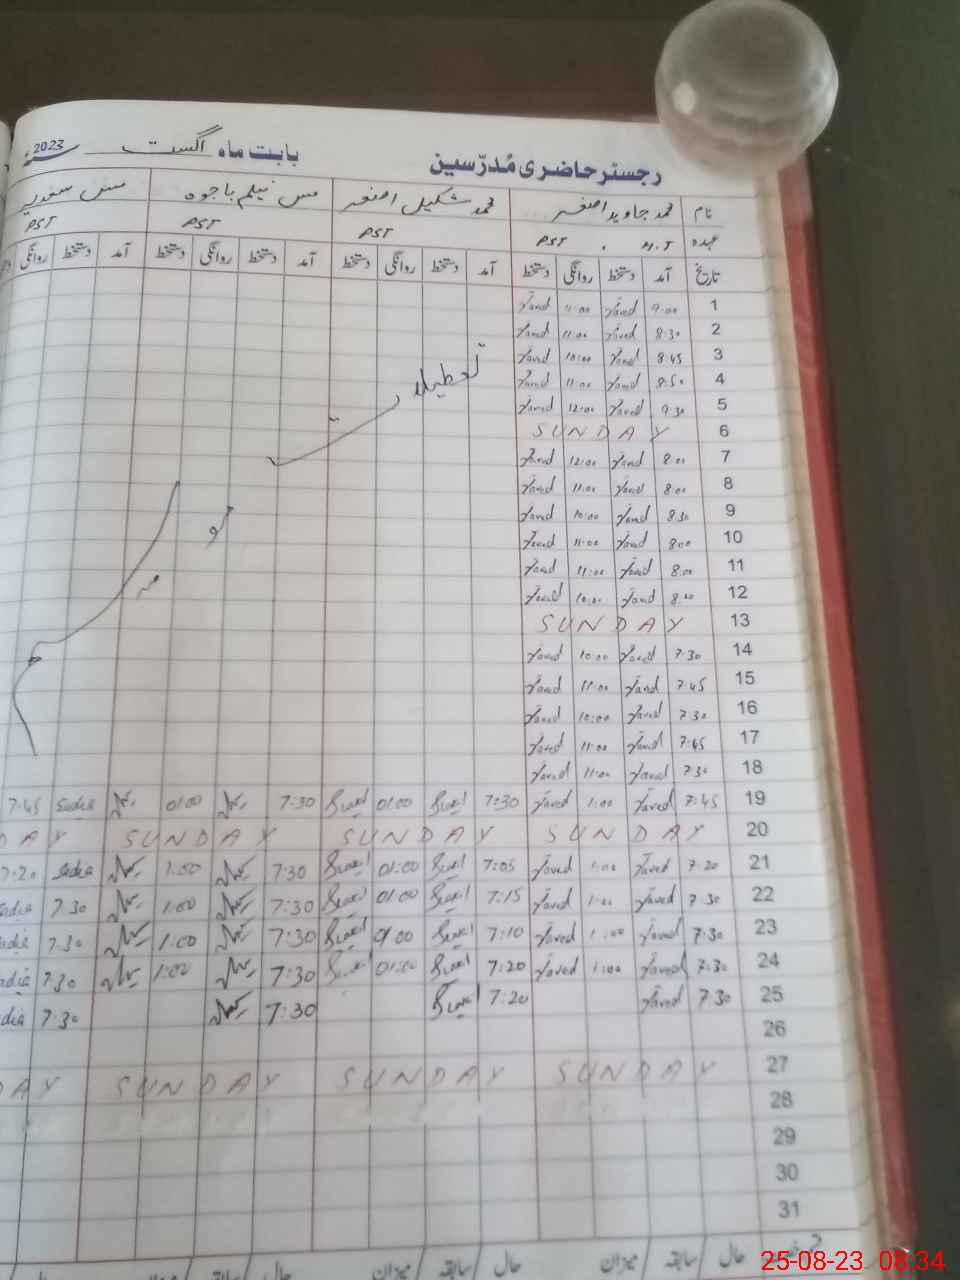 رجسٹر حاضری مُدرّسین بابت ماہ اگست سنہ 2023
نام محمد جاوید اصغر محمد شکیل اصغر مس نیلم باجوہ مس سعدیہ
عہدہ H.T PST PST PST PST
تاریخ آمد دستخط روانگی دستخط آمد دستخط روانگی دستخط آمد دستخط روانگی دستخط آمد دستخط روانگی
1 9:00 Javed 11:00 Javed
2 8:30 Javed 11:00 Javed
3 8:45 Javed 10:00 Javed
4 8:50 Javed 11:00 Javed
5 9:30 Javed 12:00 Javed
6 SUNDAY
7 8:00 Javed 12:00 Javed
8 8:00 Javed 11:00 Javed
9 8:30 Javed 10:00 Javed
10 8:00 Javed 11:00 Javed
11 8:00 Javed 11:00 Javed
12 8:00 Javed 10:00 Javed
13 SUNDAY
14 7:30 Javed 10:00 Javed
15 7:45 Javed 11:00 Javed
16 7:30 Javed 10:00 Javed
17 7:45 Javed 11:00 Javed
18 7:30 Javed 11:00 Javed
19 7:45 Javed 1:00 Javed 7:30 01:00 7:30 01:00 Sadia 7:45
20 SUNDAY SUNDAY SUNDAY DAY
21 7:20 Javed 1:00 Javed 7:05 01:00 7:30 1:00 Sadia 7:20
22 7:30 Javed 1:00 Javed 7:15 01:00 7:30 1:00 7:30
23 7:30 Javed 1:00 Javed 7:10 01:00 7:30 1:00 7:30
24 7:30 Javed 1:00 Javed 7:20 01:00 7:30 1:00 7:30
25 7:30 Javed 7:20 7:30 7:30
26
27 SUNDAY SUNDAY SUNDAY DAY
28
29
30
31
حال سابقہ میزان حال سابقہ میزان حال سابقہ
25-08-23 08:34